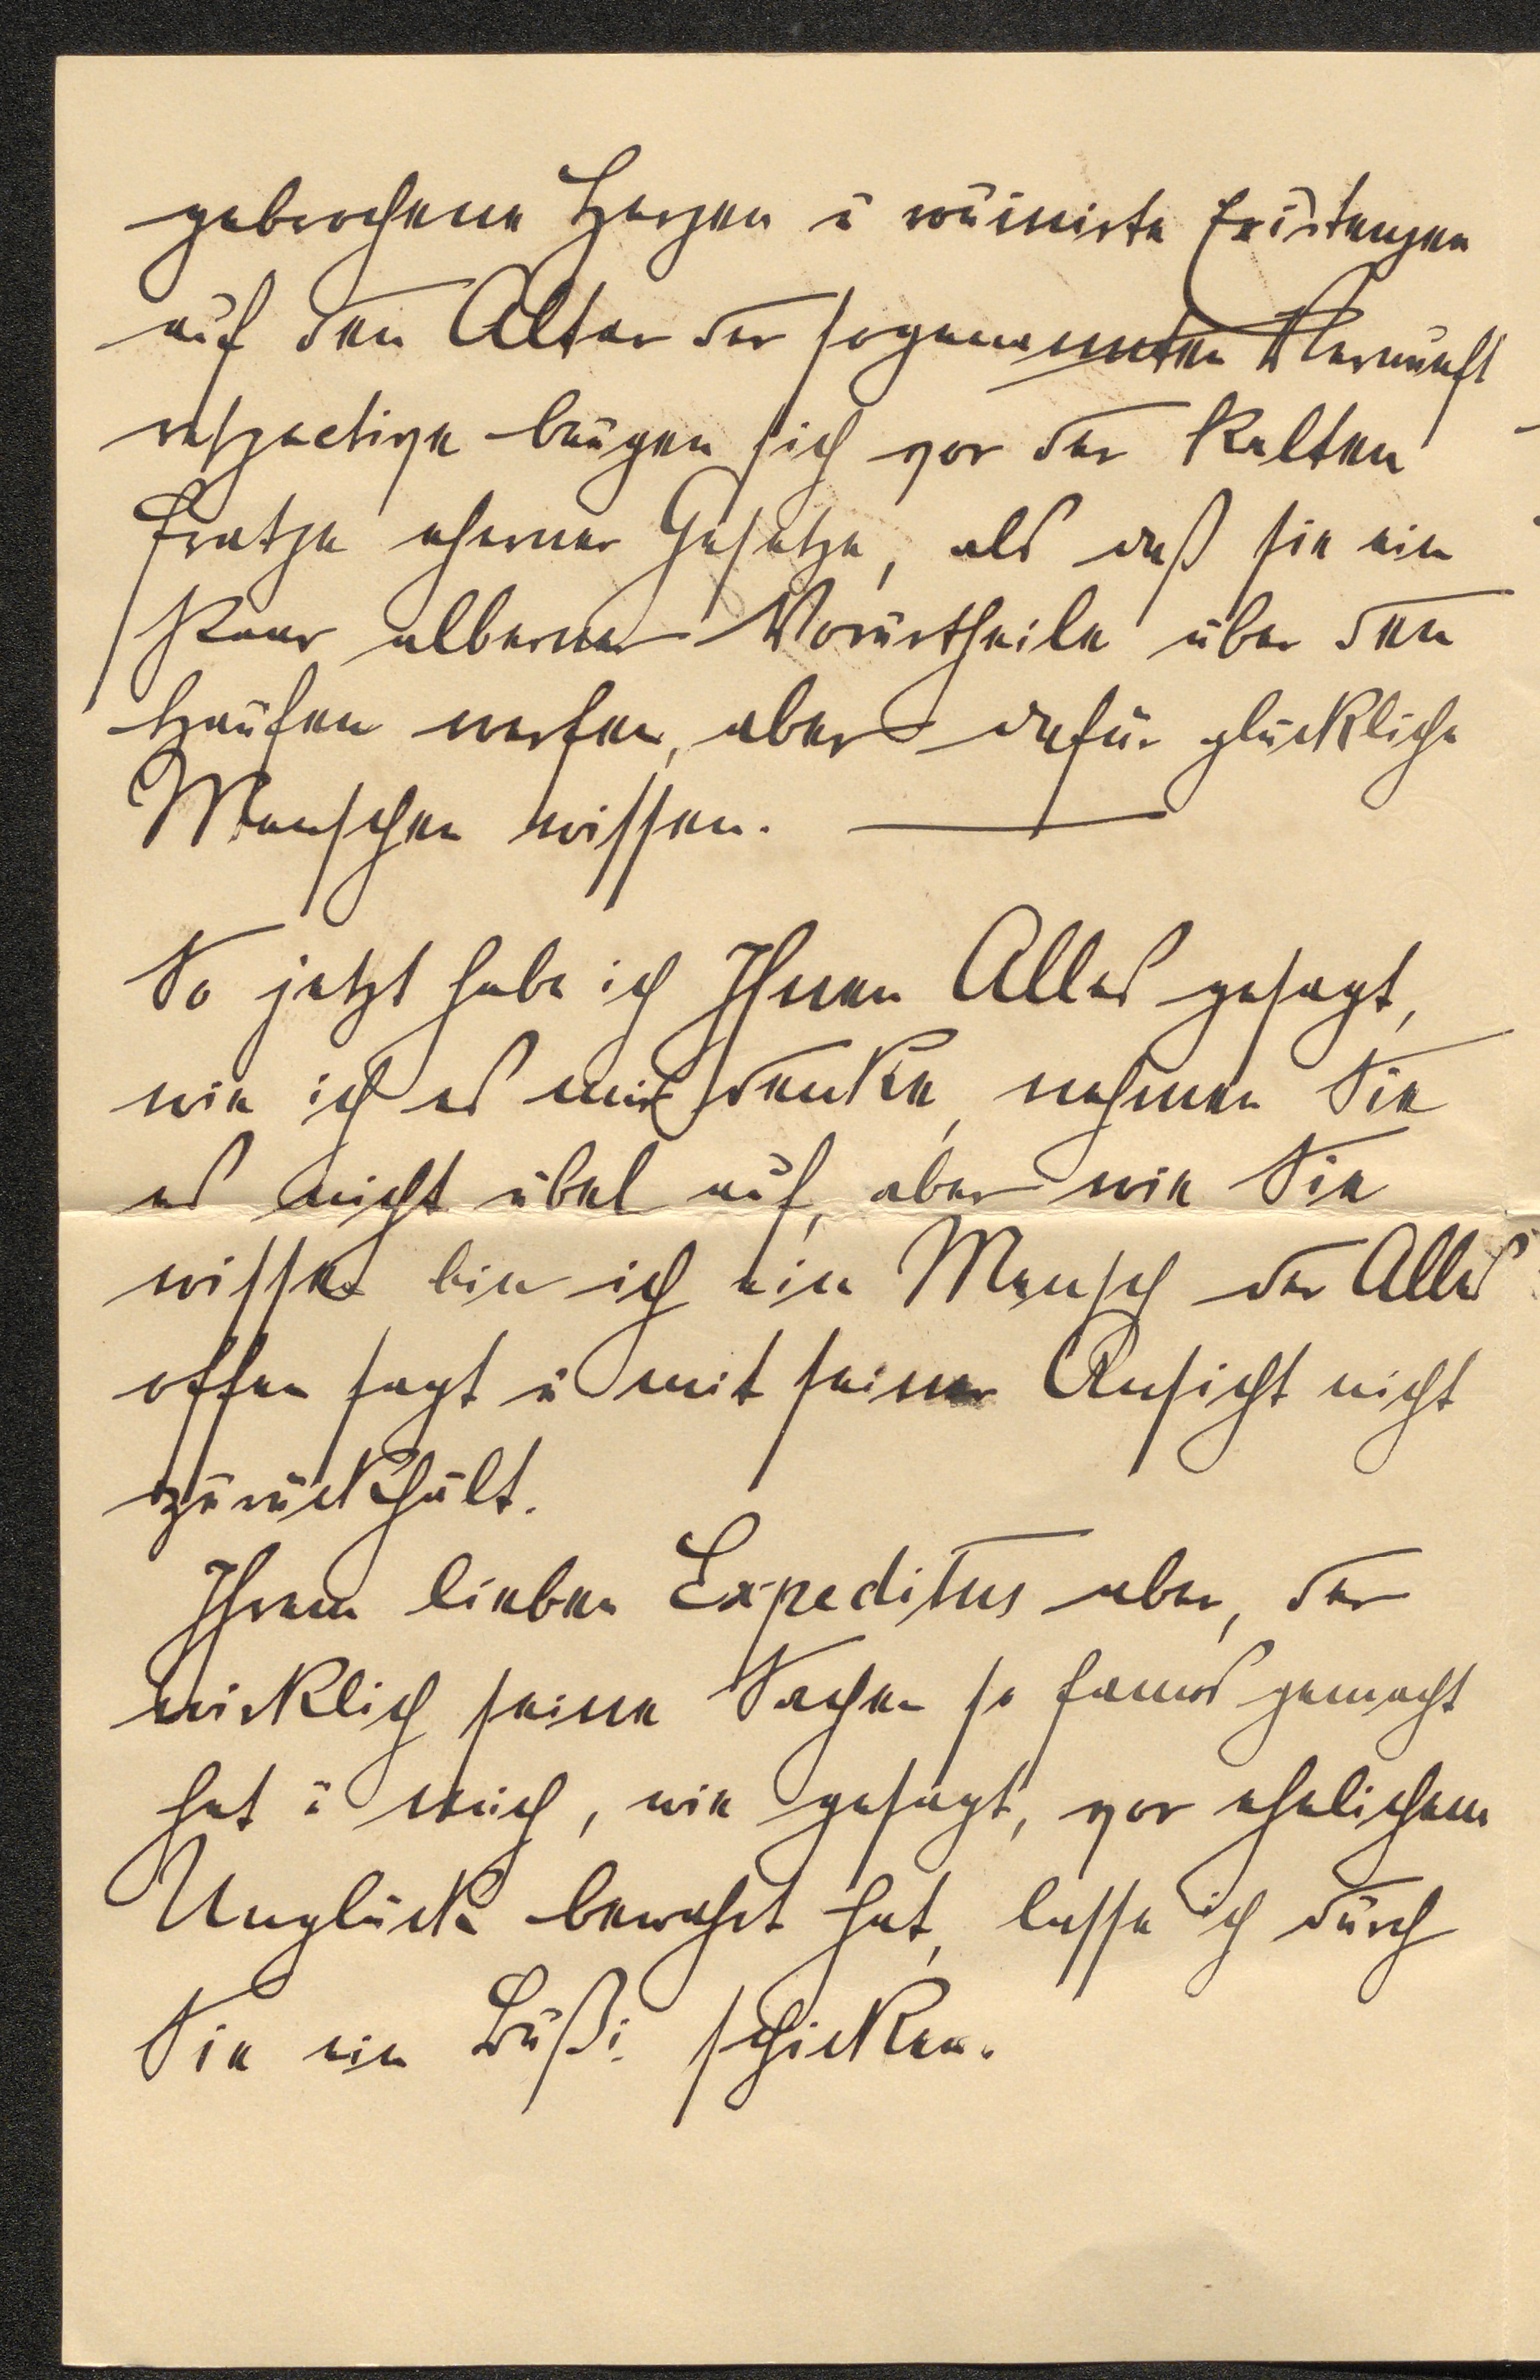 gebrochene Herzen u ruinirte Existenzen
auf den Altar der sogenannten Vernunft
respective beugen sich vor der kalten
Fratze eherner Gesetze, als daß sie ein
Paar alberner Vorurtheile über den
Haufen werfen, aber dafür glückliche
Menschen wissen. —
So jetzt habe ich Ihnen Alles gesagt,
wie ich es mir denke, nehmen Sie
es nicht übel auf, aber wie Sie
wissen bin ich ein Mensch der Alles
offen sagt u mit seiner Ansicht nicht
zurückhält.
Ihrem lieben Expeditus aber, der
wirklich seine Sachen so famos gemacht
hat u mich, wie gesagt, vor ehelichem
Unglück bewahrt hat, lasse ich durch
Sie ein Bußi schicken.